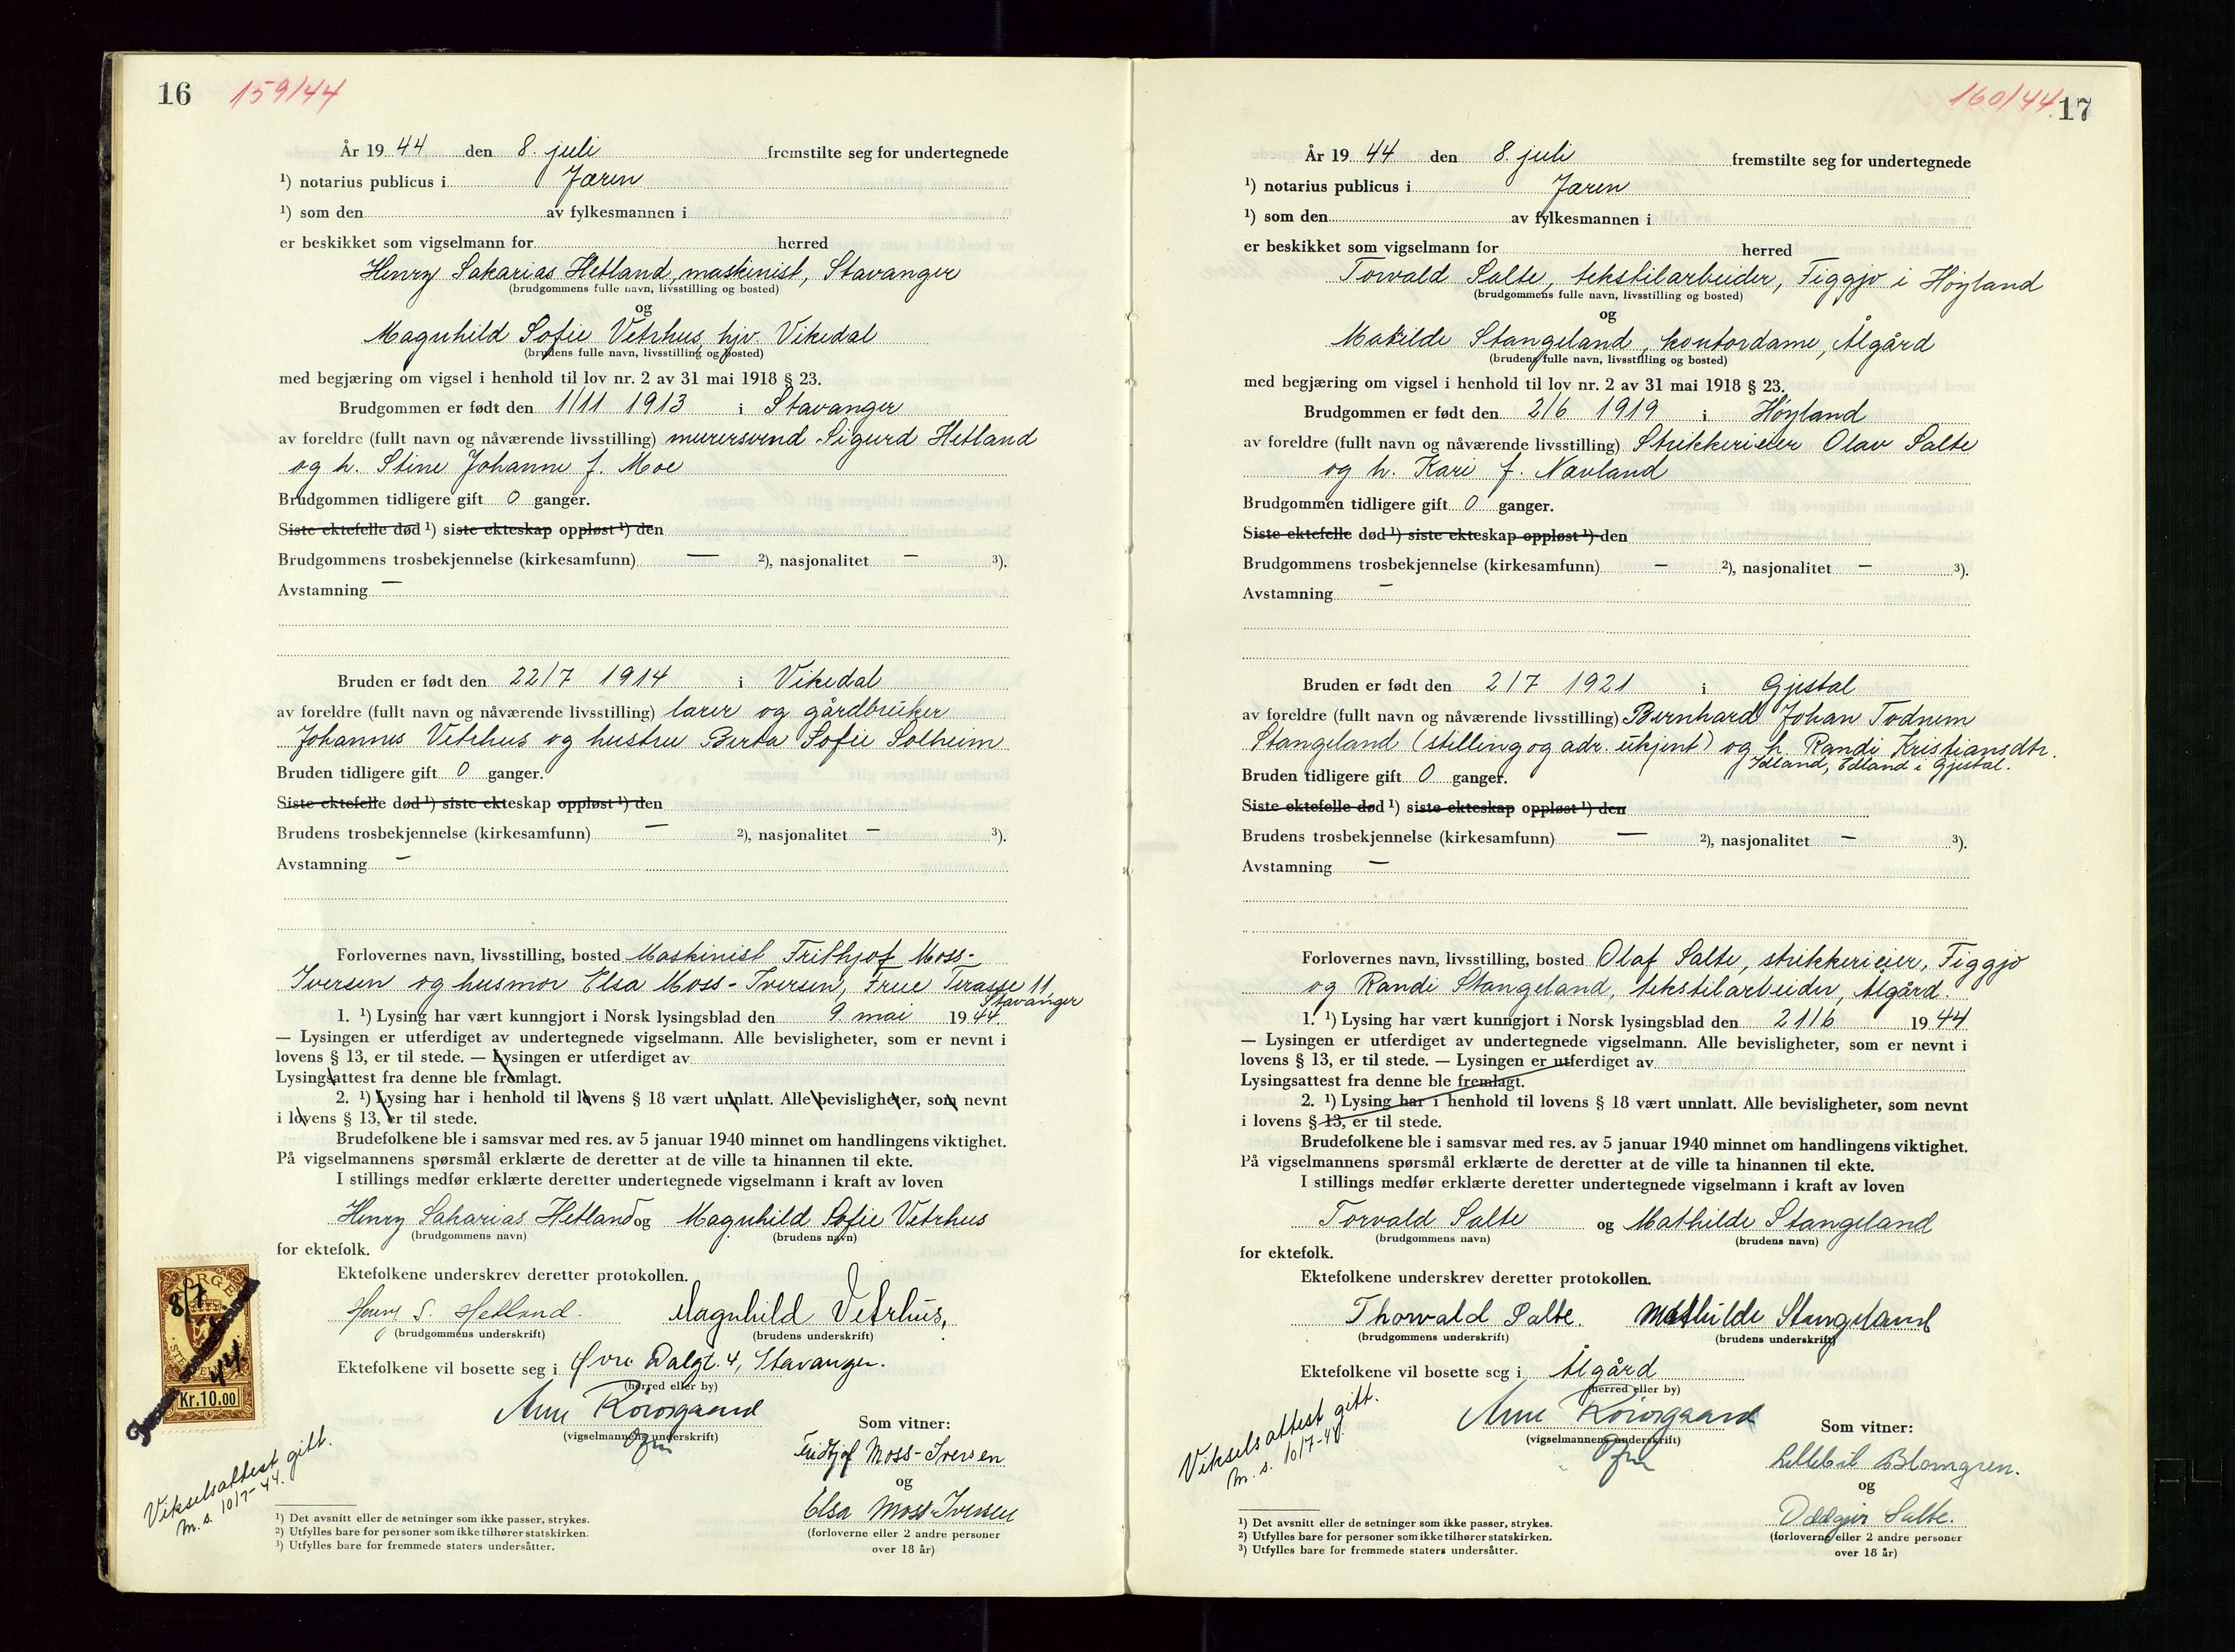 16 159/44
År 19 44 den 8. juli fremstilte seg for undertegnede
¹) notarius publicus i Jæren
¹) som den av fylkesmannen i
er beskikket som vigselmann for herred
Henry Sakarias Hetland, maskinist, Stavanger
(brudgommens fulle navn, livsstilling og bosted)
og
Magnhild Sofie Vetrhus, hjv. Vikedal
(brudens fulle navn, livsstilling og bosted)
med begjæring om vigsel i henhold til lov nr. 2 av 31 mai 1918 § 23.
Brudgommen er født den 1/11 1913 i Stavanger
av foreldre (fullt navn og nåværende livsstilling) murersvend Sigurd Hetland
og h. Stine Johanne f. Moe
Brudgommen tidligere gift 0 ganger.
Siste ektefelle død ¹) siste ekteskap oppløst ¹) den
Brudgommens trosbekjennelse (kirkesamfunn) — ²), nasjonalitet — ³).
Avstamning —
Bruden er født den 22/7 1914 i Vikedal
av foreldre (fullt navn og nåværende livsstilling) lærer og gårdbruker
Johannes Vetrhus og hustru Berta Sofie Solheim
Bruden tidligere gift 0 ganger.
Siste ektefelle død ¹) siste ekteskap oppløst ¹) den
Brudens trosbekjennelse (kirkesamfunn) — ²), nasjonalitet — ³).
Avstamning —
Forlovernes navn, livsstilling, bosted Maskinist Frithjof Moss-
Iversen og husmor Elsa Moss-Iversen, Frue Terasse 11,
Stavanger
1. ¹) Lysing har vært kunngjort i Norsk lysingsblad den 9. mai 1944.
— Lysingen er utferdiget av undertegnede vigselmann. Alle bevisligheter, som er nevnt i
lovens § 13, er til stede. — Lysingen er utferdiget av
Lysingsattest fra denne ble fremlagt.
2. ¹) Lysing har i henhold til lovens § 18 vært unnlatt. Alle bevisligheter, som nevnt
i lovens § 13, er til stede.
Brudefolkene ble i samsvar med res. av 5 januar 1940 minnet om handlingens viktighet.
På vigselmannens spørsmål erklærte de deretter at de ville ta hinannen til ekte.
I stillings medfør erklærte deretter undertegnede vigselmann i kraft av loven
Henry Sakarias Hetland og Magnhild Sofie Vetrhus
(brudgommens navn) (brudens navn)
for ektefolk.
Ektefolkene underskrev deretter protokollen.
Henry S. Hetland. Magnhild Vetrhus,
(brudgommens underskrift) (brudens underskrift)
Ektefolkene vil bosette seg i Øvre Dalgt. 4, Stavanger.
(herred eller by)
NORGE
8/7
44
Kr.10.00
(vigselmannens underskrift)
Som vitner:
Fridtjof Moss-Iversen
og
Elsa Moss-Iversen
(forloverne eller 2 andre personer
over 18 år)
Vikselsattest gitt.
m. s. 10/7-44.
¹) Det avsnitt eller de setninger som ikke passer, strykes.
²) Utfylles bare for personer som ikke tilhører statskirken.
³) Utfylles bare for fremmede staters undersåtter.
160/44. 17
År 19 44 den 8. juli fremstilte seg for undertegnede
¹) notarius publicus i Jæren
¹) som den av fylkesmannen i
er beskikket som vigselmann for herred
Torvald Salte, tekstilarbeider, Figgjo i Høyland
(brudgommens fulle navn, livsstilling og bosted)
og
Matilde Stangeland, kontordame, Ålgård
(brudens fulle navn, livsstilling og bosted)
med begjæring om vigsel i henhold til lov nr. 2 av 31 mai 1918 § 23.
Brudgommen er født den 2/6 1919 i Høyland
av foreldre (fullt navn og nåværende livsstilling) Strikkerieier Olav Salte
og h. Kari f. Nævland
Brudgommen tidligere gift 0 ganger.
Siste ektefelle død ¹) siste ekteskap oppløst ¹) den
Brudgommens trosbekjennelse (kirkesamfunn) — ²), nasjonalitet — ³).
Avstamning —
Bruden er født den 2/7 1921 i Gjestal
av foreldre (fullt navn og nåværende livsstilling) Bernhard Johan Todnem
Stangeland (stilling og adr. ukjent) og h. Randi Kristiansdtr.
Idland, Edland i Gjestal.
Bruden tidligere gift 0 ganger.
Siste ektefelle død ¹) siste ekteskap oppløst ¹) den
Brudens trosbekjennelse (kirkesamfunn) — ²), nasjonalitet — ³).
Avstamning —
Forlovernes navn, livsstilling, bosted Olaf Salte, strikkerieier, Figgjo
og Randi Stangeland, tekstilarbeider, Ålgård.
1. ¹) Lysing har vært kunngjort i Norsk lysingsblad den 21/6 1944
— Lysingen er utferdiget av undertegnede vigselmann. Alle bevisligheter, som er nevnt i
lovens § 13, er til stede. — Lysingen er utferdiget av
Lysingsattest fra denne ble fremlagt.
2. ¹) Lysing har i henhold til lovens § 18 vært unnlatt. Alle bevisligheter, som nevnt
i lovens § 13, er til stede.
Brudefolkene ble i samsvar med res. av 5 januar 1940 minnet om handlingens viktighet.
På vigselmannens spørsmål erklærte de deretter at de ville ta hinannen til ekte.
I stillings medfør erklærte deretter undertegnede vigselmann i kraft av loven
Torvald Salte og Mathilde Stangeland
(brudgommens navn) (brudens navn)
for ektefolk.
Ektefolkene underskrev deretter protokollen.
Thorvald Salte. Mathilde Stangeland
(brudgommens underskrift) (brudens underskrift)
Ektefolkene vil bosette seg i Ålgård
(herred eller by)
(vigselmannens underskrift)
Som vitner:
Lillebil Blomgren.
og
Oddgeir Salte.
(forloverne eller 2 andre personer
over 18 år)
Vikselsattest gitt.
m. s. 10/7-44.
¹) Det avsnitt eller de setninger som ikke passer, strykes.
²) Utfylles bare for personer som ikke tilhører statskirken.
³) Utfylles bare for fremmede staters undersåtter.